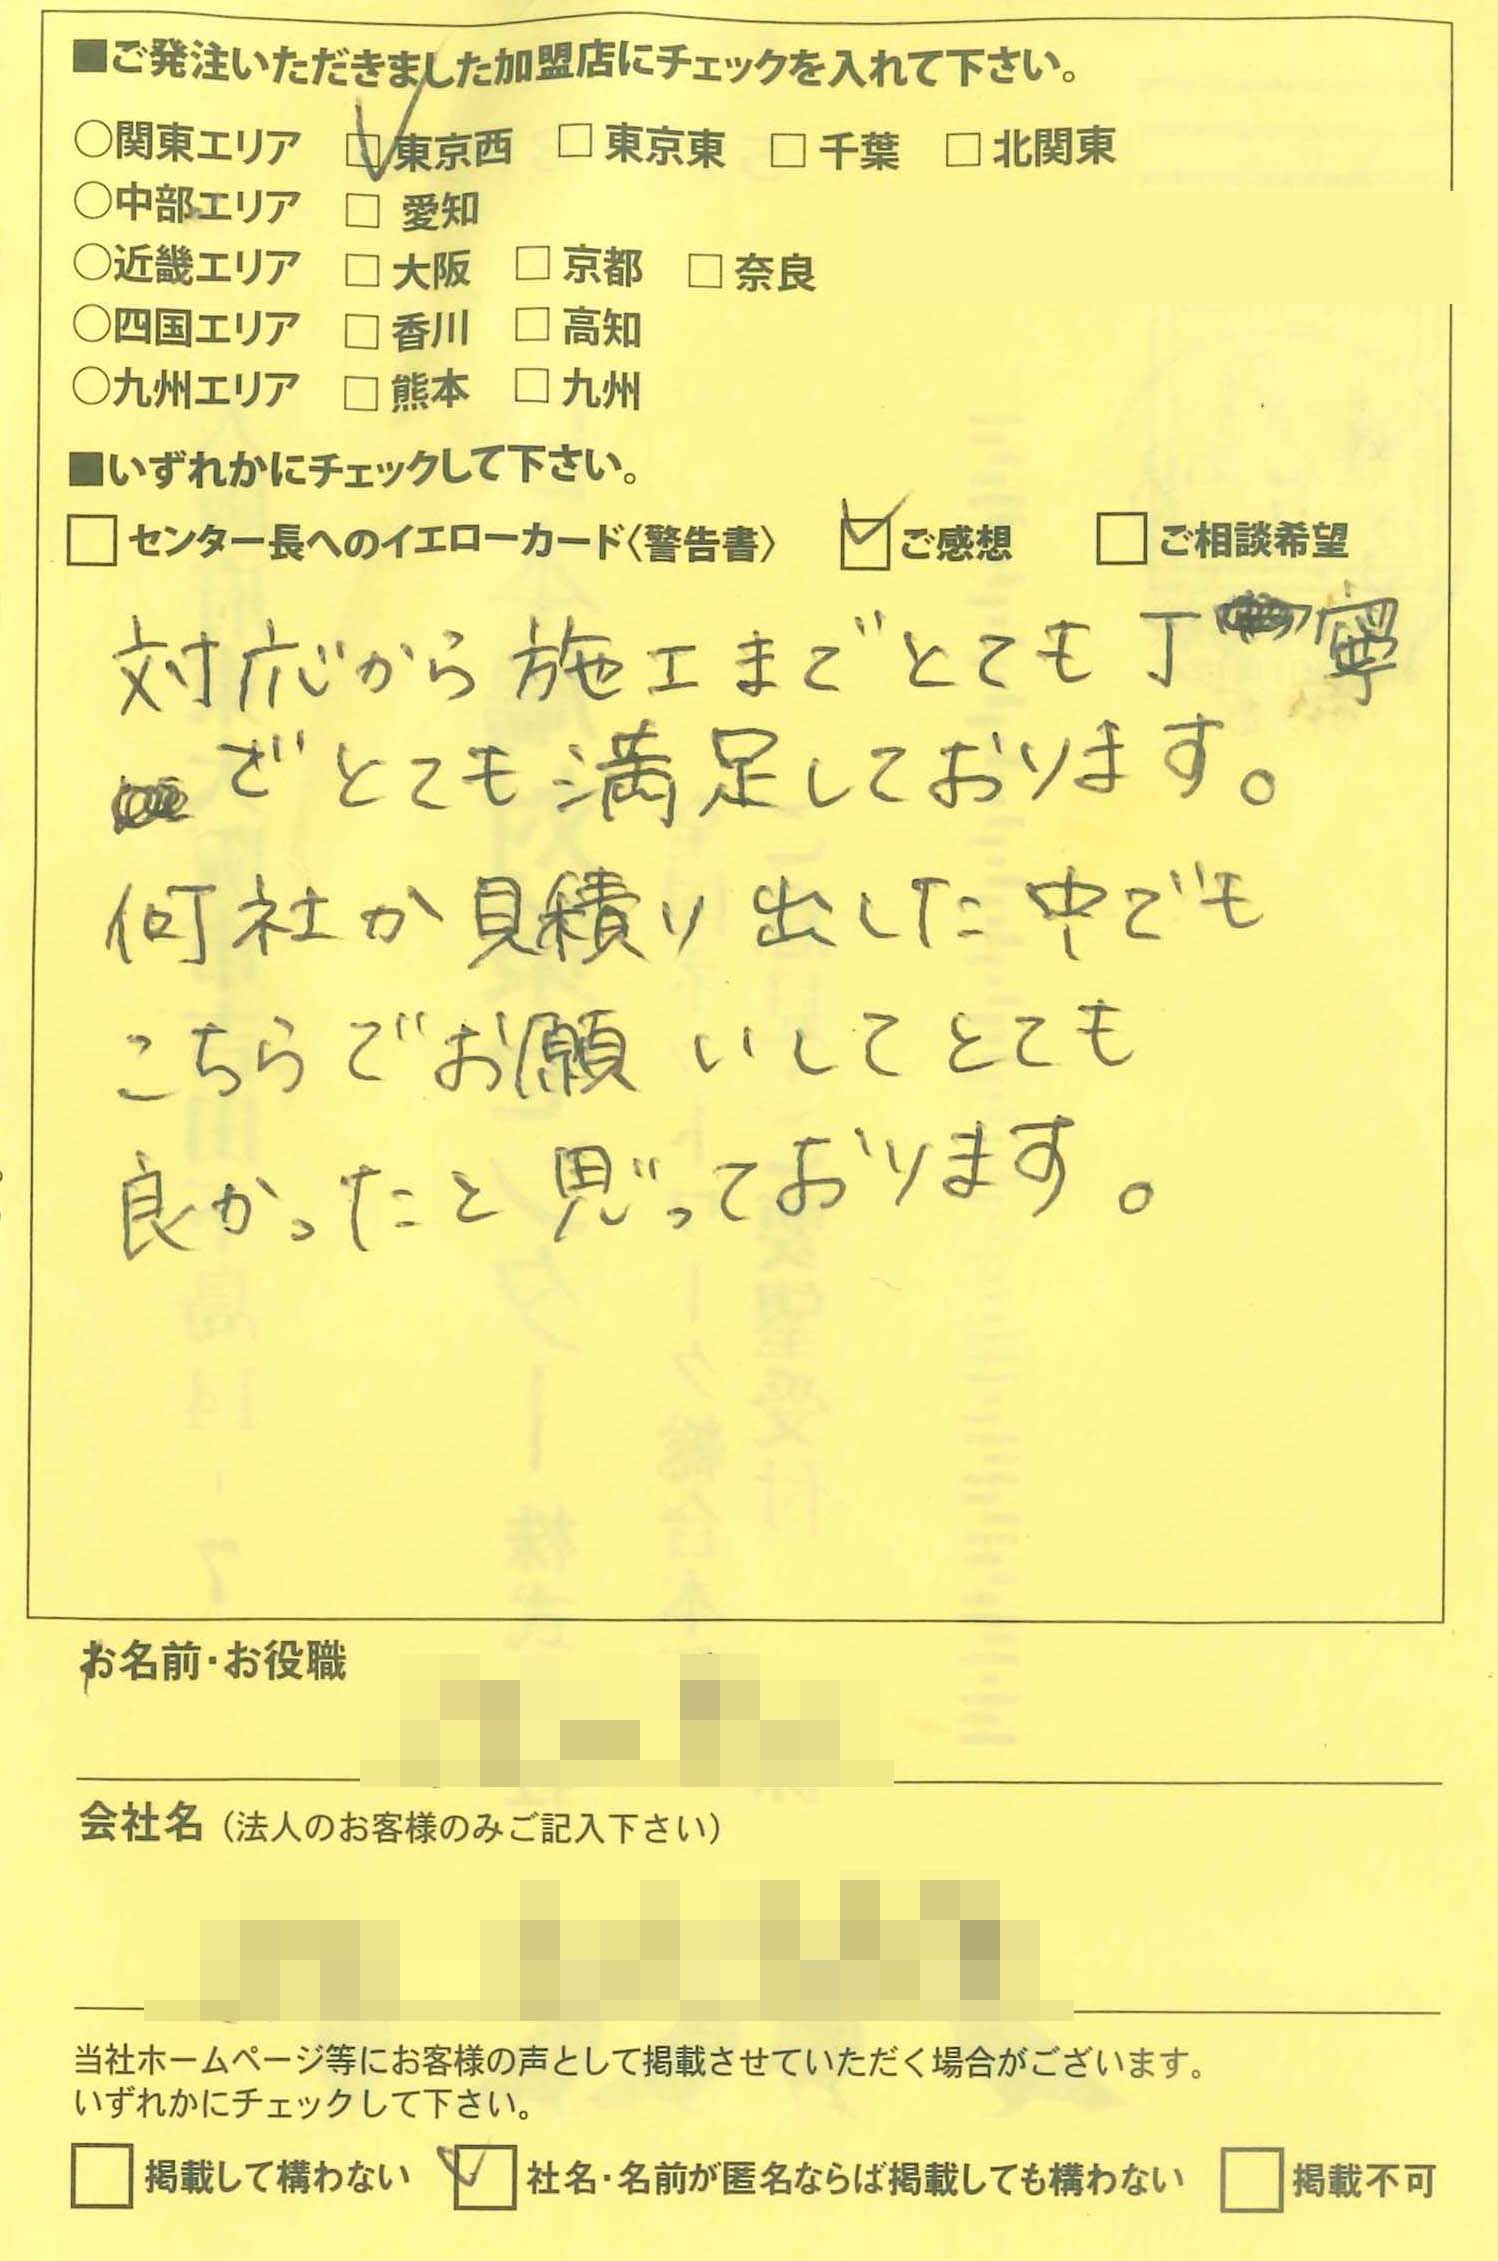 ■ご発注いただきました加盟店にチェックを入れて下さい。
○関東エリア □東京西 □東京東 □千葉 □北関東
○中部エリア □愛知
○近畿エリア □大阪 □京都 □奈良
○四国エリア □香川 □高知
○九州エリア □熊本 □九州
■いずれかにチェックして下さい。
□センター長へのイエローカード〈警告書〉 ☑ご感想 □ご相談希望
対応から施工までとても丁寧
でとても満足しております。
何社か見積り出した中でも
こちらでお願いしてとても
良かったと思っております。
お名前・お役職
会社名（法人のお客様のみご記入下さい）
当社ホームページ等にお客様の声として掲載させていただく場合がございます。
いずれかにチェックして下さい。
□掲載して構わない ☑社名・名前が匿名ならば掲載しても構わない □掲載不可